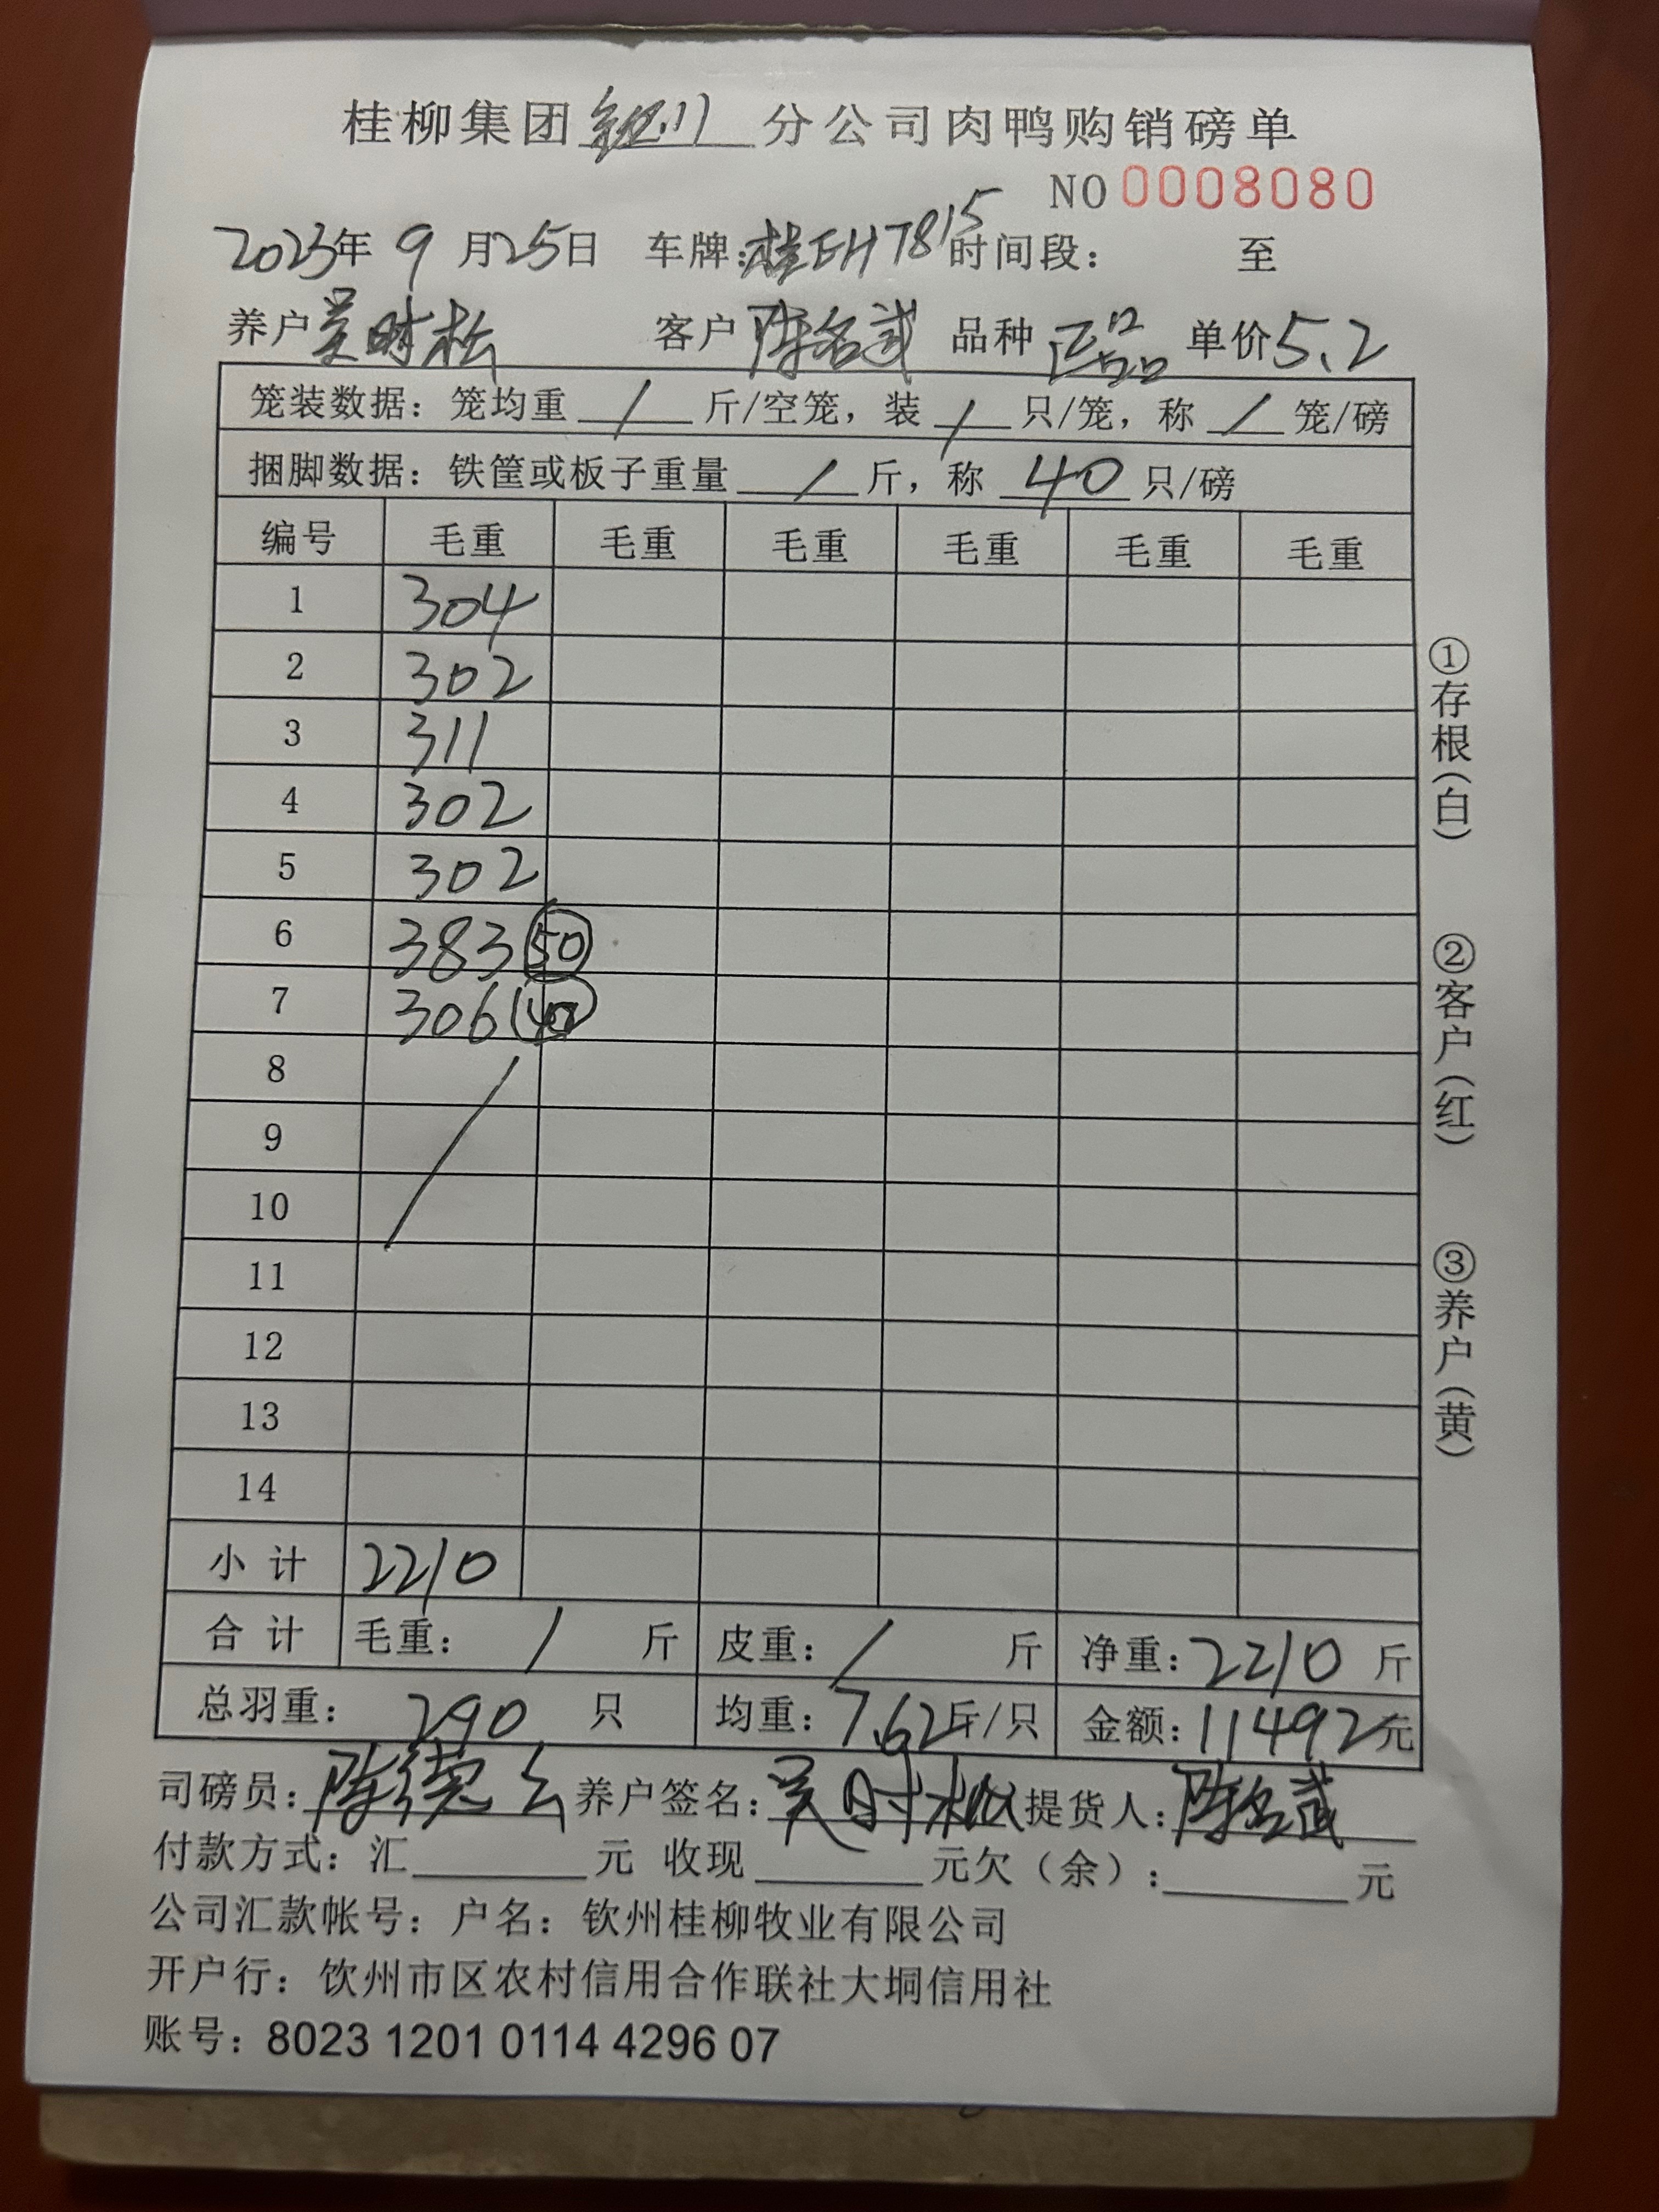 桂柳集团钦州分公司肉鸭购销磅单
NO 0008080
2023年 9 月25日 车牌:桂EH7815 时间段: 至
养户 吴时松 客户 陈名武 品种 正品 单价5.2
笼装数据: 笼均重 / 斤/空笼, 装 / 只/笼, 称 / 笼/磅
捆脚数据: 铁筐或板子重量 / 斤, 称 40 只/磅
编号 毛重 毛重 毛重 毛重 毛重 毛重
1 304
2 302
3 311
4 302
5 302
6 383 50
7 306 40
8
9
10
11
12
13
14
小计 2210
合计 毛重: / 斤 皮重: / 斤 净重: 2210 斤
总羽重: 290 只 均重: 7.62斤/只 金额: 11492元
司磅员: 陈德 养户签名: 吴时松 提货人: 陈名武
付款方式: 汇 元 收现 元欠(余): 元
公司汇款帐号: 户名: 钦州桂柳牧业有限公司
开户行: 钦州市区农村信用合作联社大垌信用社
账号: 8023 1201 0114 4296 07
①存根(白)
②客户(红)
③养户(黄)